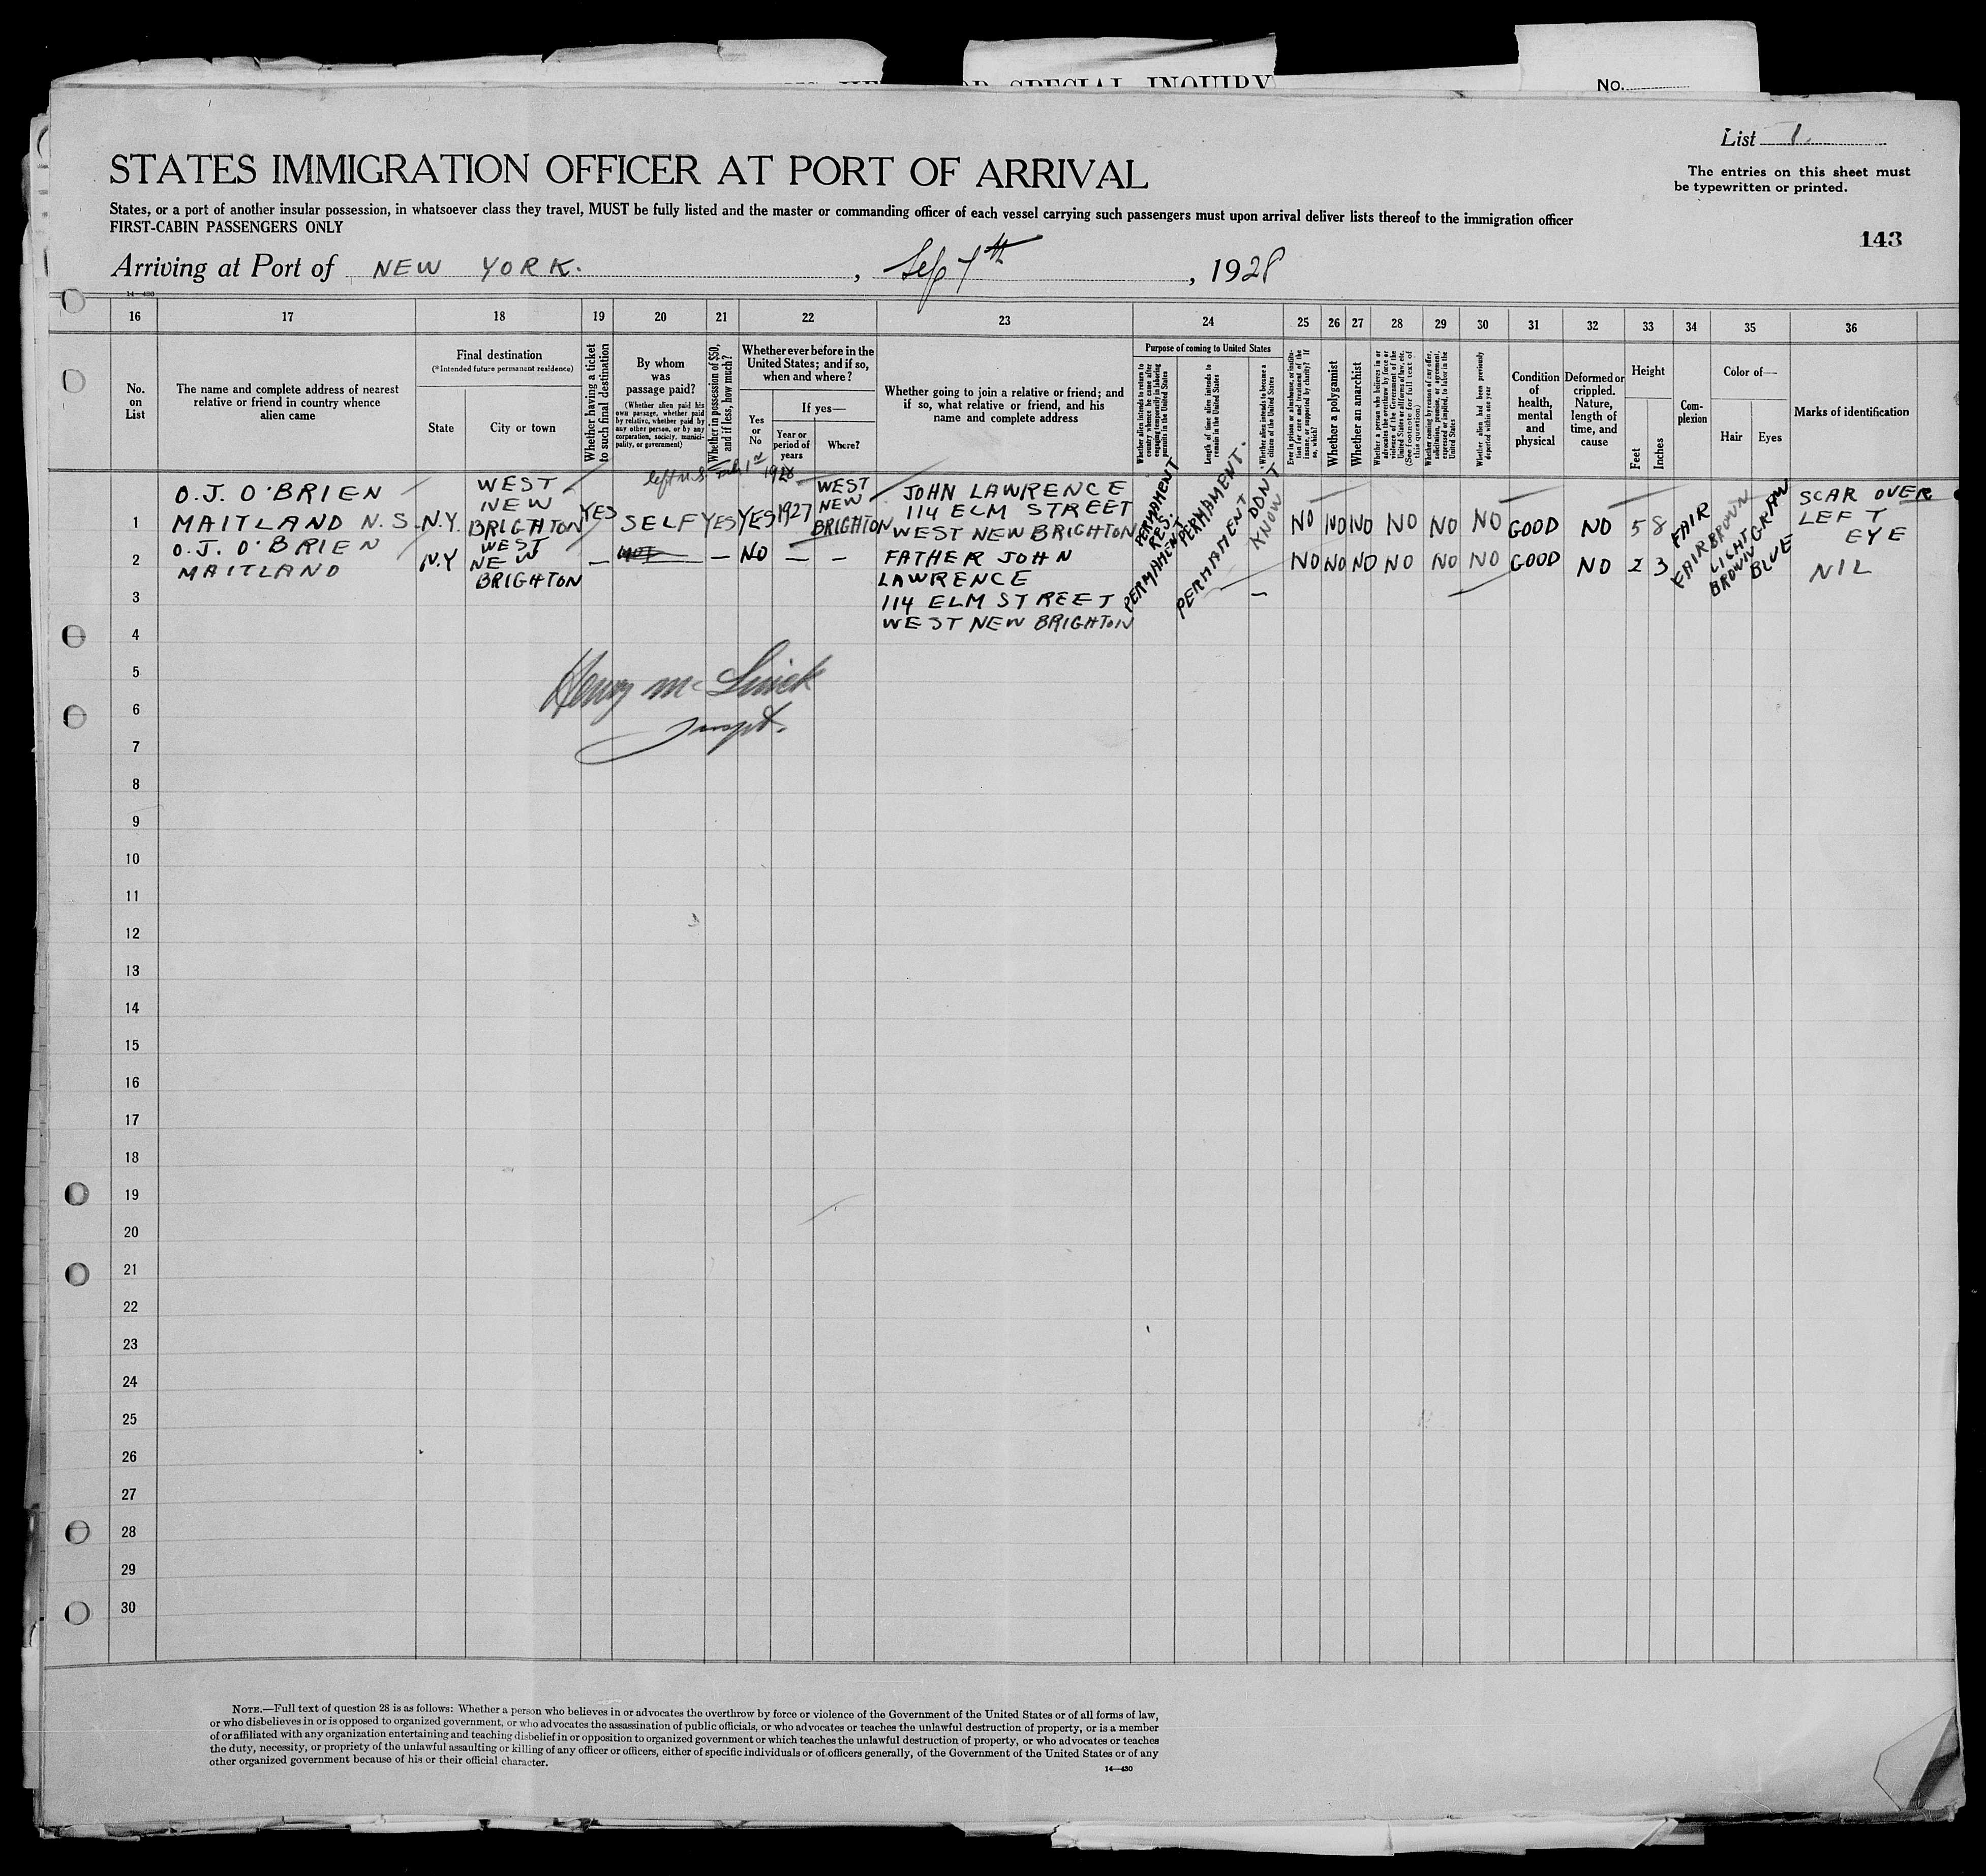 SPECIAL INQUIRY
No.
List 1
STATES IMMIGRATION OFFICER AT PORT OF ARRIVAL
The entries on this sheet must
be typewritten or printed.
States, or a port of another insular possession, in whatsoever class they travel, MUST be fully listed and the master or commanding officer of each vessel carrying such passengers must upon arrival deliver lists thereof to the immigration officer
FIRST-CABIN PASSENGERS ONLY
143
Arriving at Port of NEW YORK. , Sep 7th , 1928
14—430
16 17 18 19 20 21 22 23 24 25 26 27 28 29 30 31 32 33 34 35 36
No.
on
List
The name and complete address of nearest
relative or friend in country whence
alien came
Final destination
(*Intended future permanent residence)
State
City or town
Whether having a ticket
to such final destination
By whom
was
passage paid?
(Whether alien paid his
own passage, whether paid
by relative, whether paid by
any other person, or by any
corporation, society, munici-
pality, or government)
Whether in possession of $50,
and if less, how much?
Whether ever before in the
United States; and if so,
when and where?
Yes
or
No
If yes—
Year or
period of
years
Where?
Whether going to join a relative or friend; and
if so, what relative or friend, and his
name and complete address
Purpose of coming to United States
Whether alien intends to return to
country whence he came after
engaging temporarily in laboring
pursuits in the United States
Length of time alien intends to
remain in the United States
Whether alien intends to become a
citizen of the United States
Ever in prison or almshouse, or institu-
tion for care and treatment of the
insane, or supported by charity? If
so, which?
Whether a polygamist
Whether an anarchist
Whether a person who believes in or
advocates the overthrow by force or
violence of the Government of the
United States or all forms of law, etc.
(See footnote for full text of
this question)
Whether coming by reason of any offer,
solicitation, promise, or agreement,
expressed or implied, to labor in the
United States
Whether alien had been previously
deported within one year
Condition
of
health,
mental
and
physical
Deformed or
crippled.
Nature,
length of
time, and
cause
Height
Feet
Inches
Com-
plexion
Color of—
Hair
Eyes
Marks of identification
left U.S. 1st 1928
1
O.J. O'BRIEN
MAITLAND N.S.
N.Y.
WEST
NEW
BRIGHTON
YES
SELF
YES
YES
1927
WEST
NEW
BRIGHTON
JOHN LAWRENCE
114 ELM STREET
WEST NEW BRIGHTON
PERMAMENT
RES.
PERMAMENT.
DONT
KNOW
NO NO NO NO NO NO GOOD NO 5 8 FAIR BROWN GRAY
SCAR OVER
LEFT
EYE
2
O.J. O'BRIEN
MAITLAND
N.Y
WEST
NEW
BRIGHTON
—
— NO — —
FATHER JOHN
LAWRENCE
114 ELM STREET
WEST NEW BRIGHTON
PERMAMENT
PERMAMENT
—
NO NO NO NO NO NO GOOD NO 2 3 FAIR
LIGHT
BROWN
BLUE
NIL
3
4
5
Henry Mc
6
Inspt.
7
8
9
10
11
12
13
14
15
16
17
18
19
20
21
22
23
24
25
26
27
28
29
30
NOTE.—Full text of question 28 is as follows: Whether a person who believes in or advocates the overthrow by force or violence of the Government of the United States or of all forms of law,
or who disbelieves in or is opposed to organized government, or who advocates the assassination of public officials, or who advocates or teaches the unlawful destruction of property, or is a member
of or affiliated with any organization entertaining and teaching disbelief in or opposition to organized government or which teaches the unlawful destruction of property, or who advocates or teaches
the duty, necessity, or propriety of the unlawful assaulting or killing of any officer or officers, either of specific individuals or of officers generally, of the Government of the United States or of any
other organized government because of his or their official character.
14—430